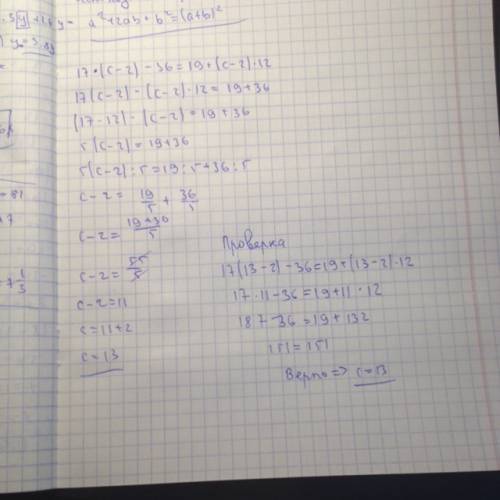 a²+2ab+b²=(a+b)²
17·(c-2)-36=19+(c-2)·12
17(c-2)-(c-2)·12=19+36
(17-12)-(c-2)=19+36
5(c-2)=19+36
5(c-2):5=19:5+36:5
c-2=19/5+36/5
c-2=19+36/5
c-2=55/5
c-2=11
c=11+2
c=13
Проверка
17(13-2)-36=19+(13-2)·12
17·11-36=19+11·12
187-36=19+132
151=151
Верно=> c=13